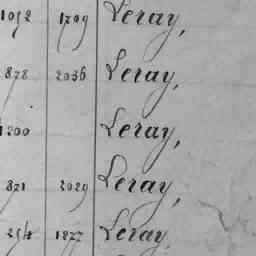 1052 1709 Leray,
878 2036 Leray,
1200 Leray,
821 2029 Leray,
254 1877 Leray,